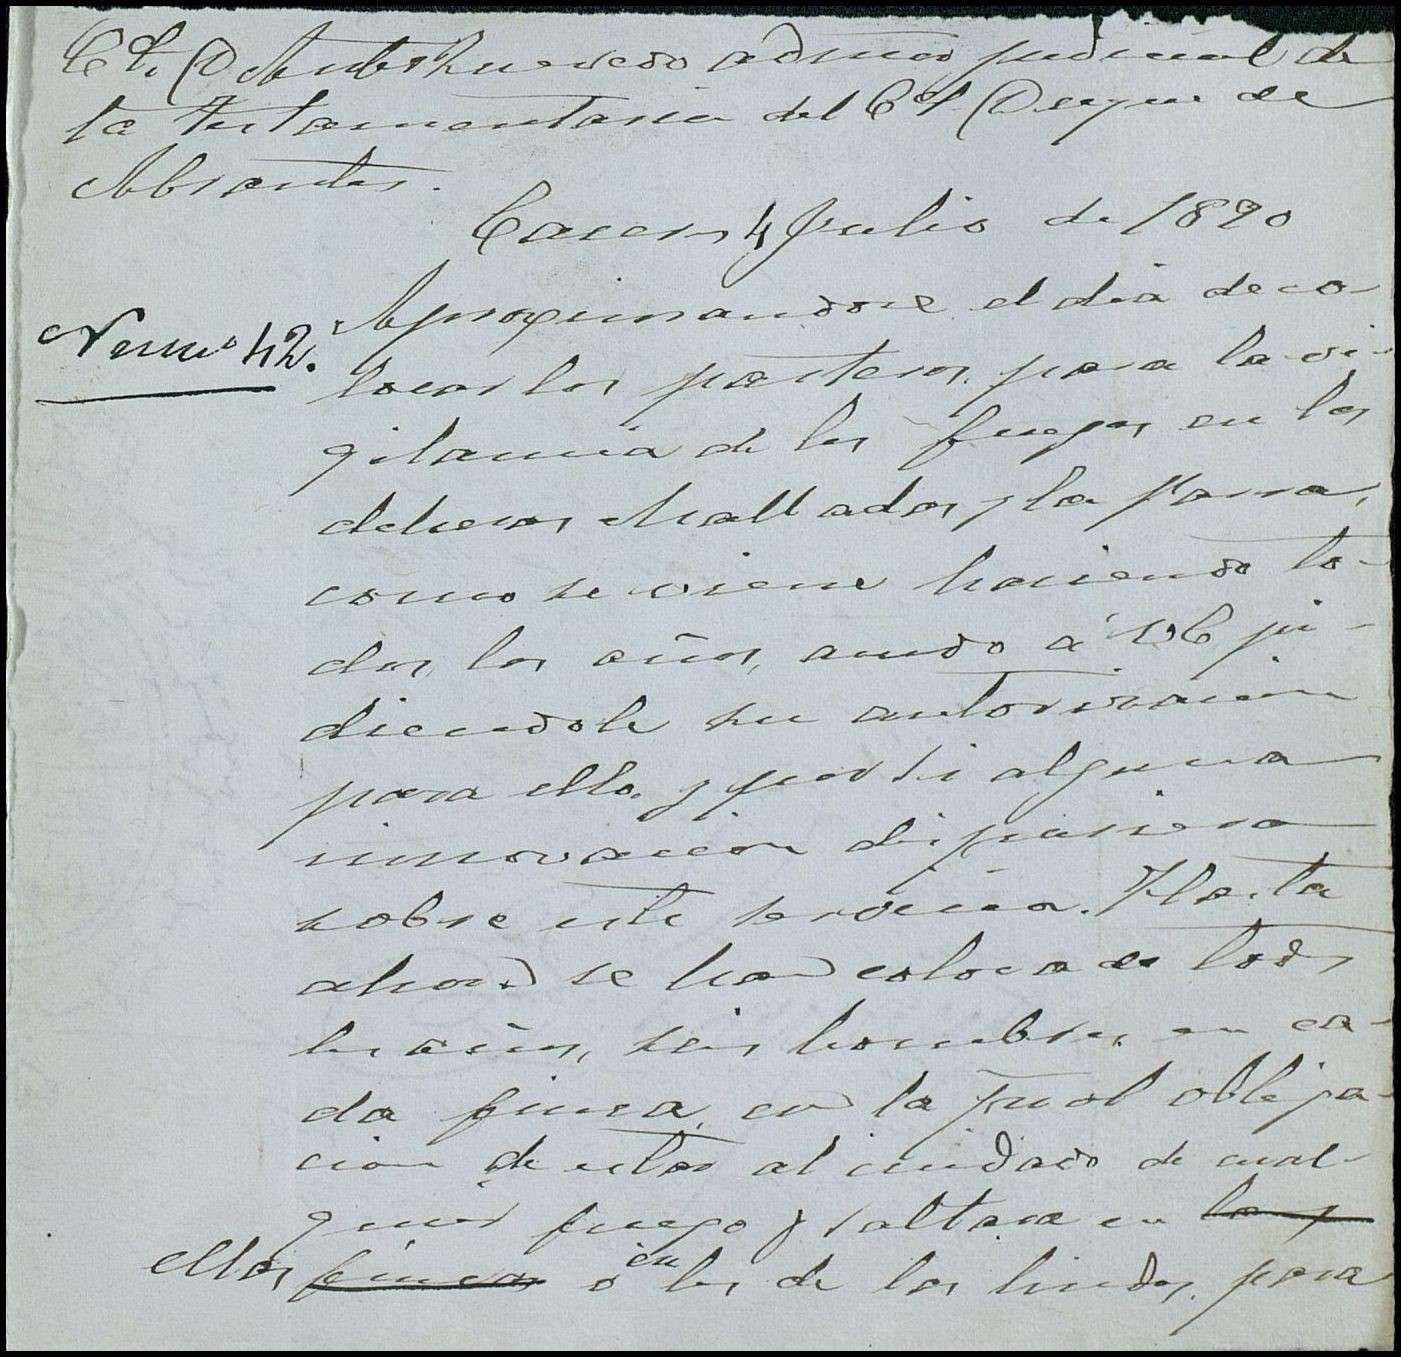 admor judicial de
la testamentaria del Duque de
Abrantes.
Caceres 4 Julio de 1890
Numº 42.
Aproximandose el dia de co-
locar los para la vi-
gilancia de los fuegos en las
dehesas Malladas y la Parra,
como se viene haciendo to-
dos los años, acudo á pi-
diendole su autorizacion
para ello, y por si alguna
innovacion dispusiera
sobre este servicio. Hasta
ahora se han colocado todos
los años, seis hombres en ca-
da finca, con la obliga-
cion de estos al cuidado de cual-
quier fuego saltara en las
ellas fincas o en las de los lindes, para